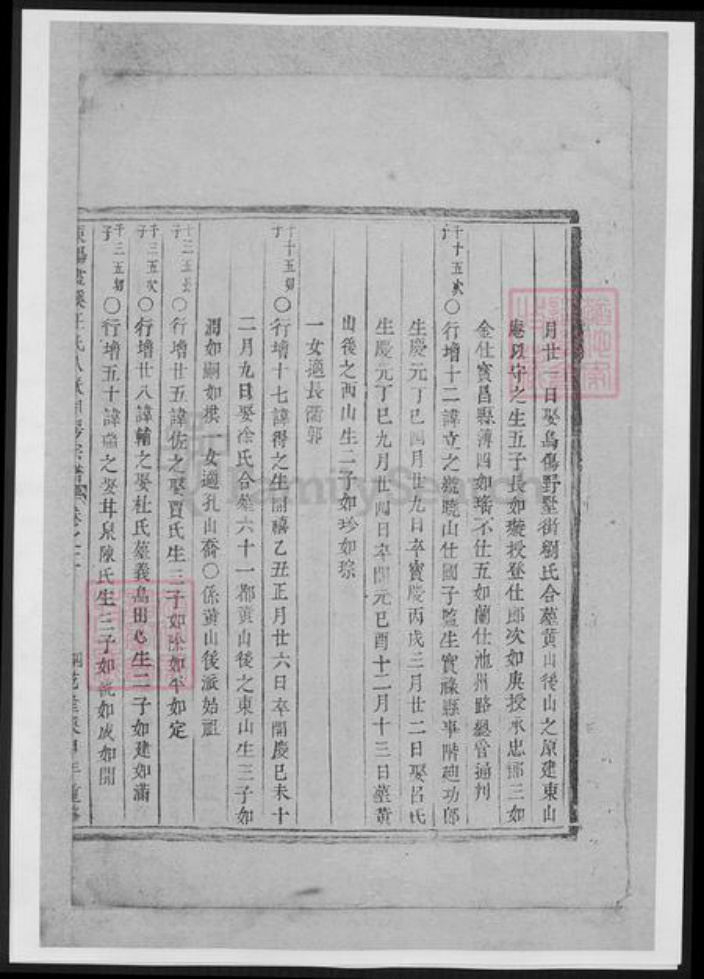 月廿一日娶烏傷野墅街劉氏合墓黃山後山之原建東山
庵以守之生五子長如璇授登仕郎次如庚授承忠郎三如
金仕寶昌縣簿四如璠不仕五如蘭仕池州路總管通判
千十五次子〇行增十二諱立之號曉山仕國子監生實祿縣事階迪功郎
生慶元丁巳四月廿九日卒寶慶丙戌三月廿二日娶呂氏
生慶元丁巳九月廿四日卒開元己酉十二月十三日墓黃
山後之西山生二子如珍如琮
一女適長衢郭
千十五幼子〇行增十七諱得之生開禧乙丑正月廿六日卒開慶己未十
二月九日娶徐氏合墓六十一都黃山後之東山生三子如
潤如嗣如祺一女適孔山喬〇係黃山後派始祖
十三五長子〇行增廿五諱佐之娶賈氏生三子如除如平如定
千三五次子〇行增廿八諱輔之娶杜氏墓義烏田心生二子如建如滿
千三五幼子〇行增五十諱瑞之娶茸泉陳氏生三子如㲽如成如開
東陽畫溪王氏 宗譜 卷之二十
FamilySearch